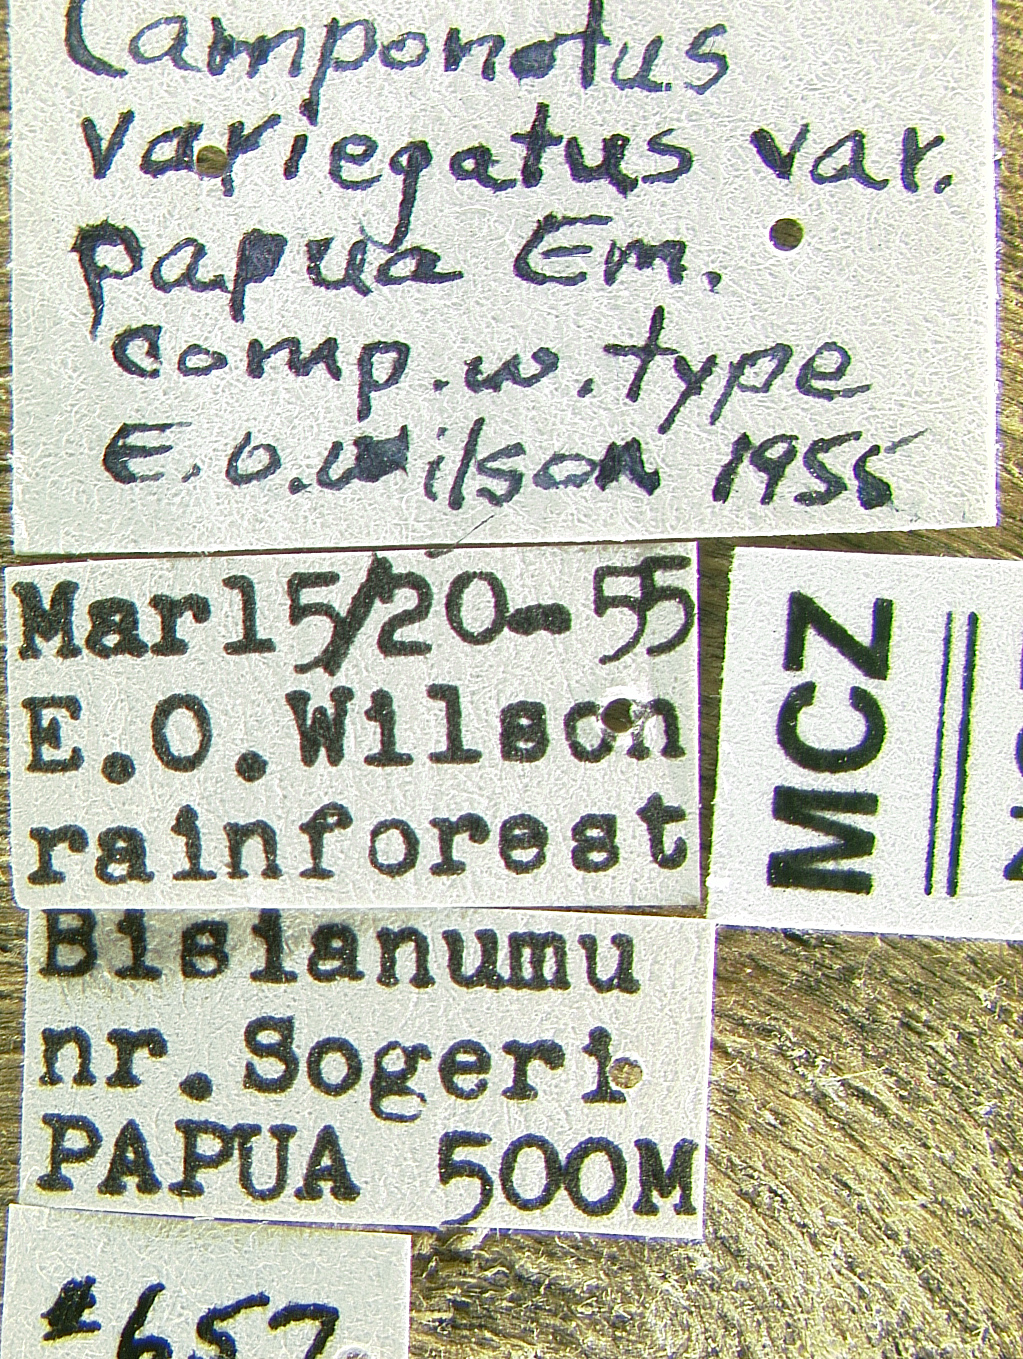 Camponotus
variegatus var.
papua Em.
comp. w. type
E.O. Wilson 1955
Mar15/20-55
E.O.Wilson
rainforest
MCZ
Bisianumu
nr. Sogeri
PAPUA 500M
#657